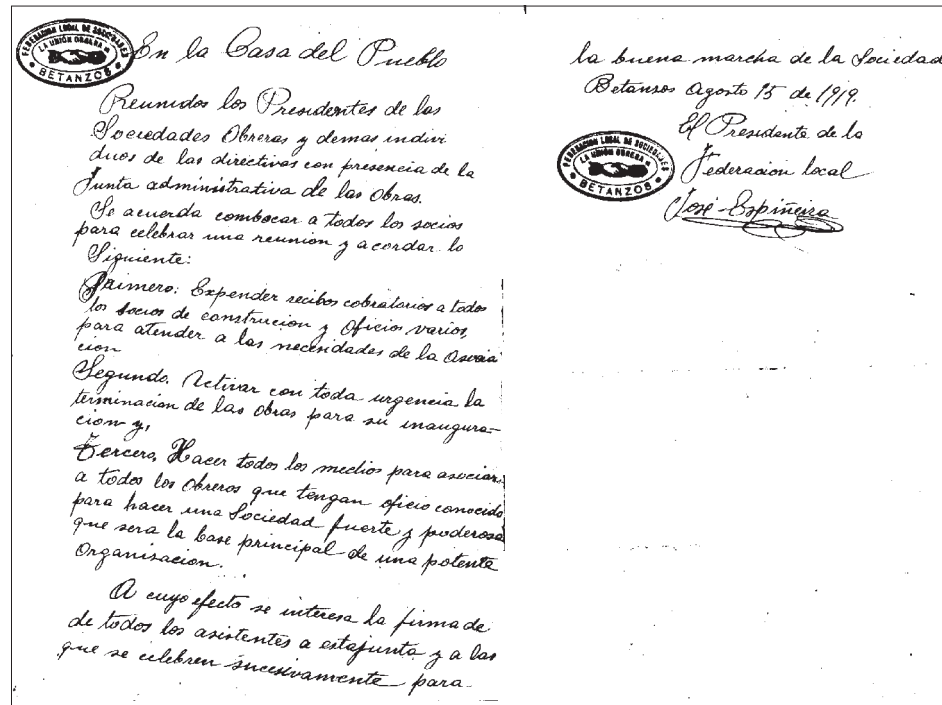 FEDERACION LOCAL DE SOCIEDADES
LA UNIÓN OBRERA
BETANZOS
En la Casa del Pueblo
Reunidos los Presidentes de las
Sociedades Obreras y demas indivi
duos de las directivas con presencia de la
Junta administrativa de las Obras.
Se acuerda combocar a todos los socios
para celebrar una reunion y acordar lo
Siguiente:
Primero: Expender recibos cobratorios a todos
los socios de construcion y Oficios varios,
para atender a las necesidades de la Asocia
cion
Segundo. Activar con toda urgencia la
terminacion de las obras para su inaugura-
cion y,
Tercero, Hacer todos los medios para asociar
a todos los Obreros que tengan oficio conocido
para hacer una Sociedad fuerte y poderosa
que sera la base principal de una potente
Organisacion.
A cuyo efecto se interesa la firma de
de todos los asistentes a esta junta y a las
que se celebren sucesivamente para
la buena marcha de la Sociedad
Betansos Agosto 15 de 1919.
El Presidente de la
Federacion local
FEDERACION LOCAL DE SOCIEDADES
LA UNIÓN OBRERA
BETANZOS
José Espiñeira